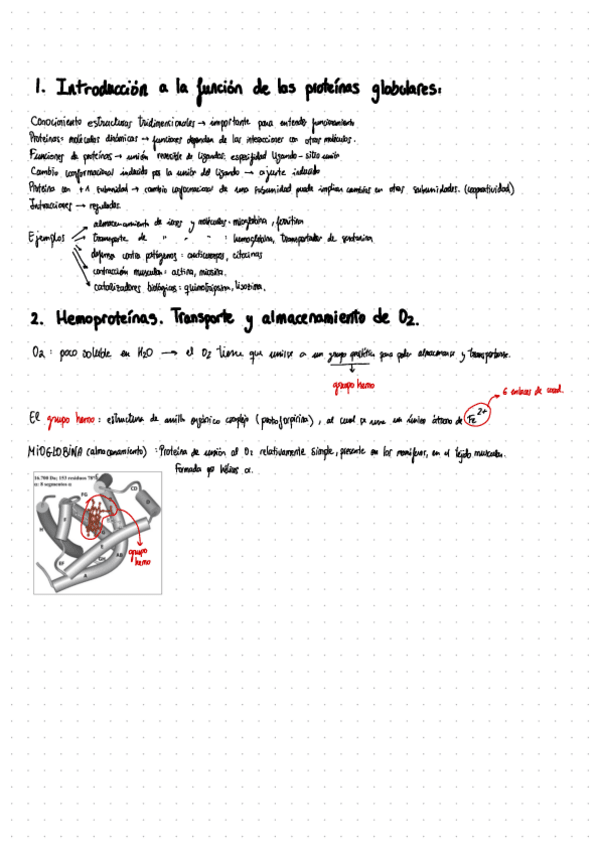 1. Introducción a la función de las proteínas globulares:
Conocimiento estructuras tridimensionales → importante para entender funcionamiento
Proteínas= moléculas dinámicas → funciones dependen de las interacciones con otras moléculas.
Funciones de proteínas → unión reversible de ligandos. especifidad ligando - sitio unión
Cambio conformacional inducido por la unión del ligando → ajuste inducido
Proteína con +1 subunidad → cambio conformacional de una subunidad puede implicar cambios en otras subunidades. (cooperatividad)
Interacciones → reguladas.
Ejemplos
almacenamiento de iones y moléculas - mioglobina, ferritina
transporte de " " " : hemoglobina, transportador de serotonina
defensa contra patógenos : anticuerpos, citocinas
contracción muscular : actina, miosina.
catalizadores biológicos : quimotripsina, lisozima.
2. Hemoproteínas. Transporte y almacenamiento de O2.
O2 : poco soluble en H2O → el O2 tiene que unirse a un grupo prostético para poder almacenarse y transportarse.
grupo hemo
6 enlaces de coord.
El grupo hemo : estructura de anillo orgánico complejo (protoporfirina), al cual se une un único átomo de Fe2+
MIOGLOBINA (almacenamiento) : Proteína de unión al O2 relativamente simple, presente en los mamíferos, en el tejido muscular.
Formada por hélices α.
16.700 Da; 153 residuos 70%
α: 8 segmentos α
CD
FG
D
F
H
E
B
G
GH
AB
EF
A
grupo hemo